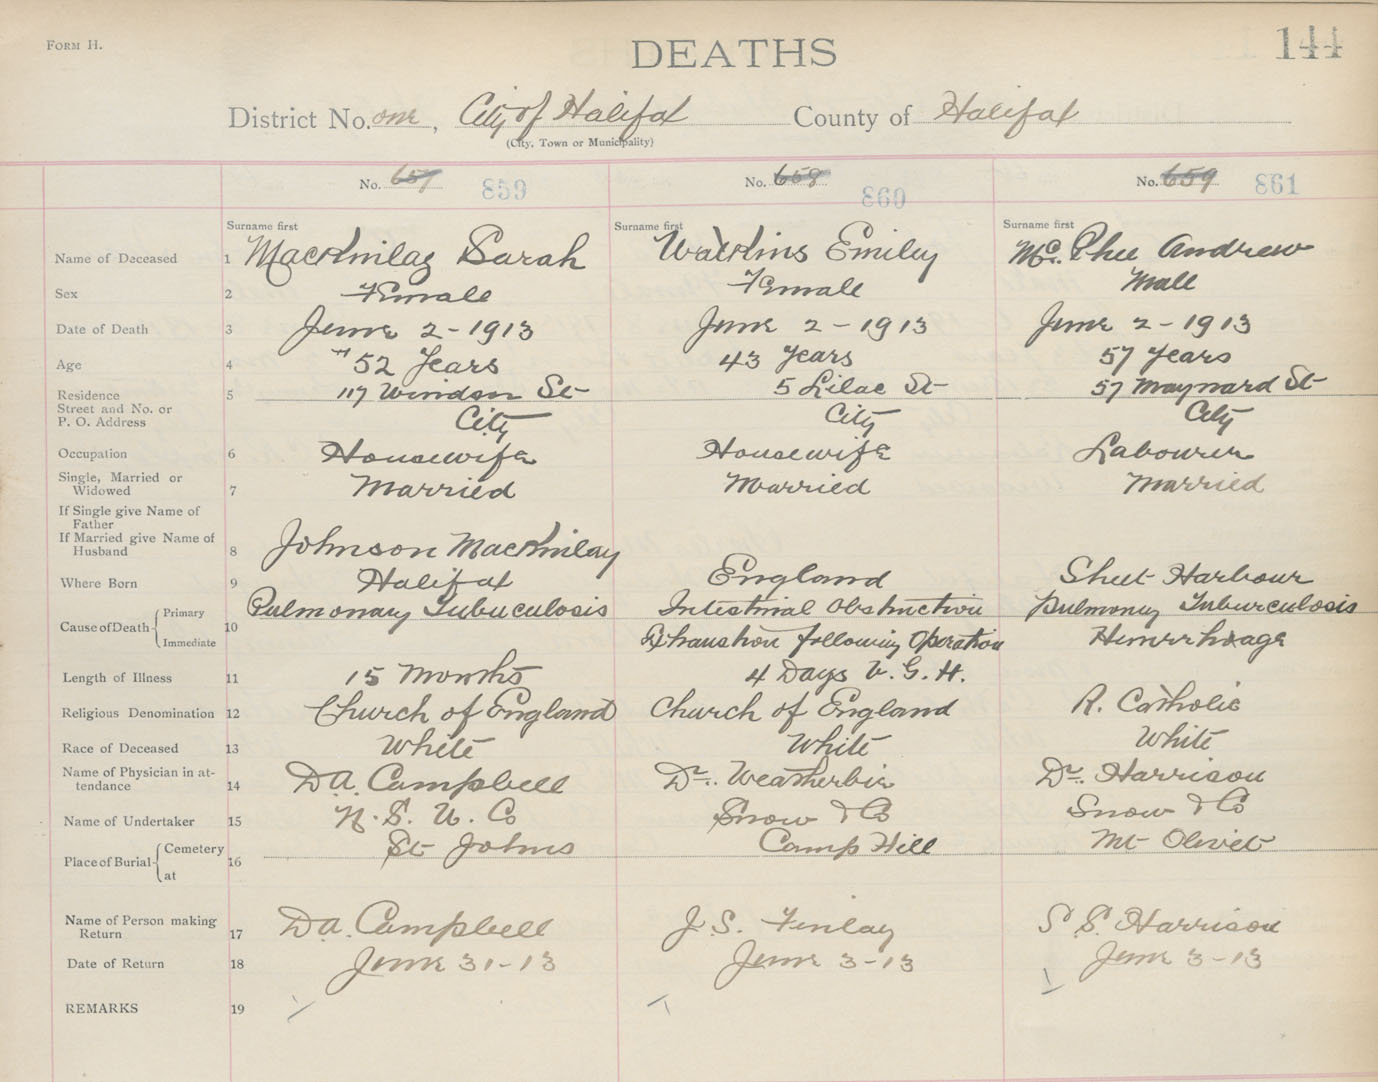 FORM H.
DEATHS
144
District No. one, City of Halifax County of Halifax
(City, Town or Municipality)
No. 657 859 No. 658 860 No. 659 861
Surname first Surname first Surname first
Name of Deceased 1 MacKinlay Sarah Watkins Emiley Mc. Phee Andrew
Sex 2 Female Female Male
Date of Death 3 June 2-1913 June 2-1913 June 2-1913
Age 4 52 Years 43 Years 57 Years
Residence 5 117 Windsor St 5 Lilac St 57 Maynard St
Street and No. or
P. O. Address City City City
Occupation 6 Housewife Housewife Labourer
Single, Married or
Widowed 7 Married Married Married
If Single give Name of
Father
If Married give Name of
Husband 8 Johnson MacKinlay
Where Born 9 Halifax England Sheet Harbour
Cause of Death 10 Primary Pulmonary Tubuculosis Intestinal Obstruction Pulmony Tuburculosis
Immediate Exhaustion following Operation Hemrrhage
Length of Illness 11 15 Months 4 Days V. G. H.
Religious Denomination 12 Church of England Church of England R. Catholic
Race of Deceased 13 White White White
Name of Physician in at-
tendance 14 DA. Campbell Dr. Weatherbie Dr. Harrison
Name of Undertaker 15 N. S. U. Co Snow & Co Snow & Co
Place of Burial 16 Cemetery St Johns Camp Hill Mt Olivet
at
Name of Person making
Return 17 DA. Campbell J. S. Finlay S S. Harrison
Date of Return 18 June 31-13 June 3-13 June 3-13
REMARKS 19